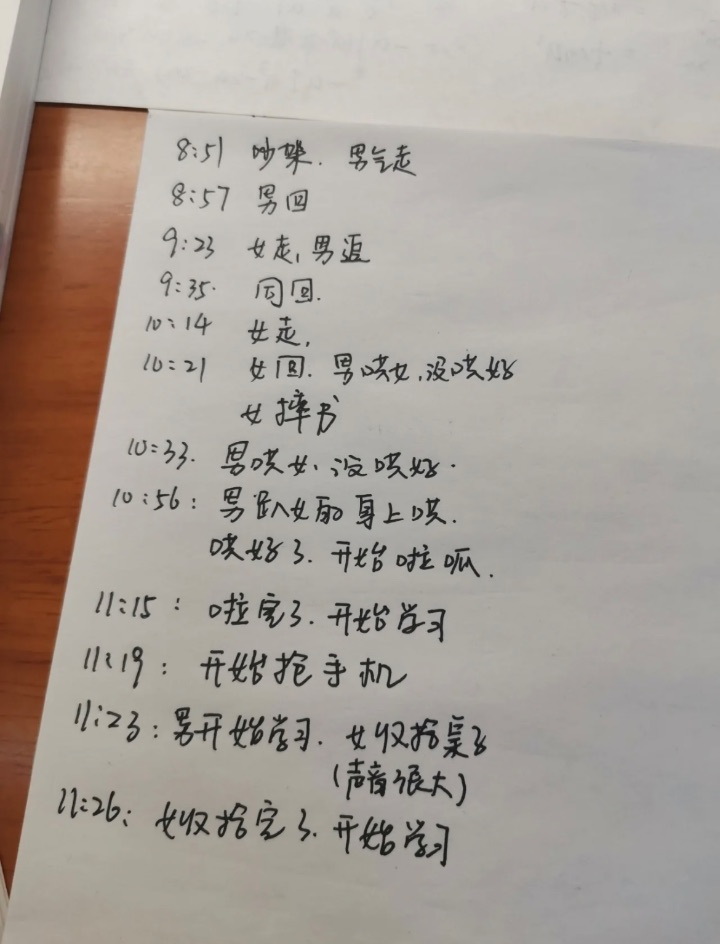 8:51 吵架. 男气走
8:57 男回
9:23 女走,男追
9:35. 同回.
10:14 女走,
10:21 女回. 男哄女,没哄好
女摔书
10:33. 男哄女、没哄好.
10:56: 男趴女的身上哄.
哄好了. 开始啦呱.
11:15: 啦完了. 开始学习
11:19: 开始抢手机
11:23: 男开始学习. 女收拾桌子
(声音很大)
11:26: 女收拾完了. 开始学习